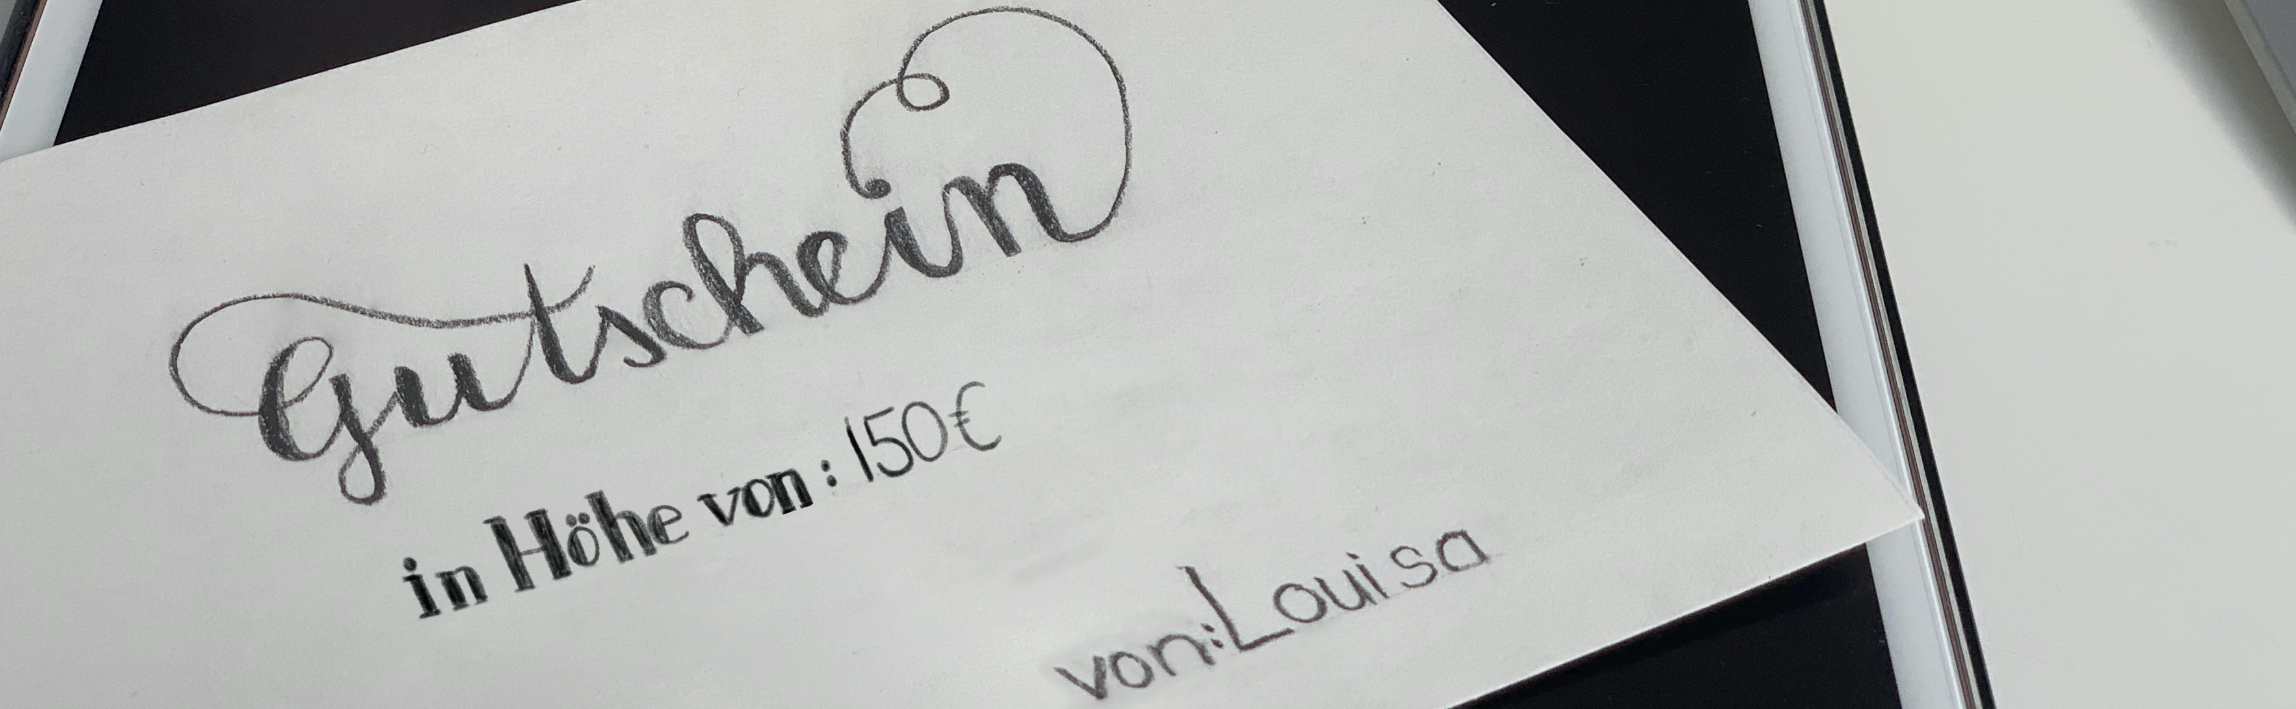 Gutschein
in Höhe von: 150€
von: Louisa